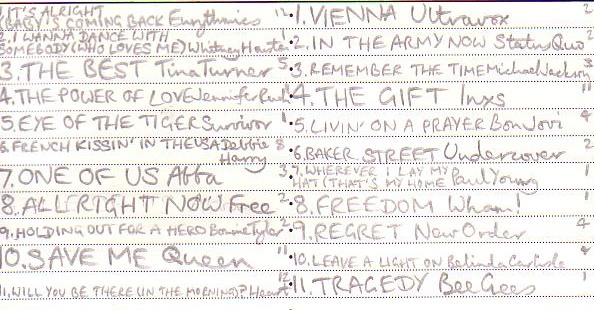 IT'S ALRIGHT
(BABY'S COMING BACK Eurythmics 12
2. I WANNA DANCE WITH
SOMEBODY (WHO LOVES ME) Whitney Houston 1
3. THE BEST Tina Turner 5
4. THE POWER OF LOVE Jennifer Rush 1
5. EYE OF THE TIGER Survivor 1
6. FRENCH KISSIN' IN THE USA Debbie 8
Harry
7. ONE OF US Abba 3
8. ALL RIGHT NOW Free 2
9. HOLDING OUT FOR A HERO Bonnie Tyler 2
10. SAVE ME Queen 11
11. WILL YOU BE THERE (IN THE MORNING)? Heart
1. VIENNA Ultravox 2
2. IN THE ARMY NOW Status Quo 2
3. REMEMBER THE TIME Michael Jackson 3
4. THE GIFT Inxs 11
5. LIVIN' ON A PRAYER Bon Jovi 4
6. BAKER STREET Undercover 2
7. WHEREVER I LAY MY
HAT (THAT'S MY HOME Paul Young 1
8. FREEDOM Wham! 1
9. REGRET New Order 4
10. LEAVE A LIGHT ON Belinda Carlisle 4
11. TRAGEDY Bee Gees 1